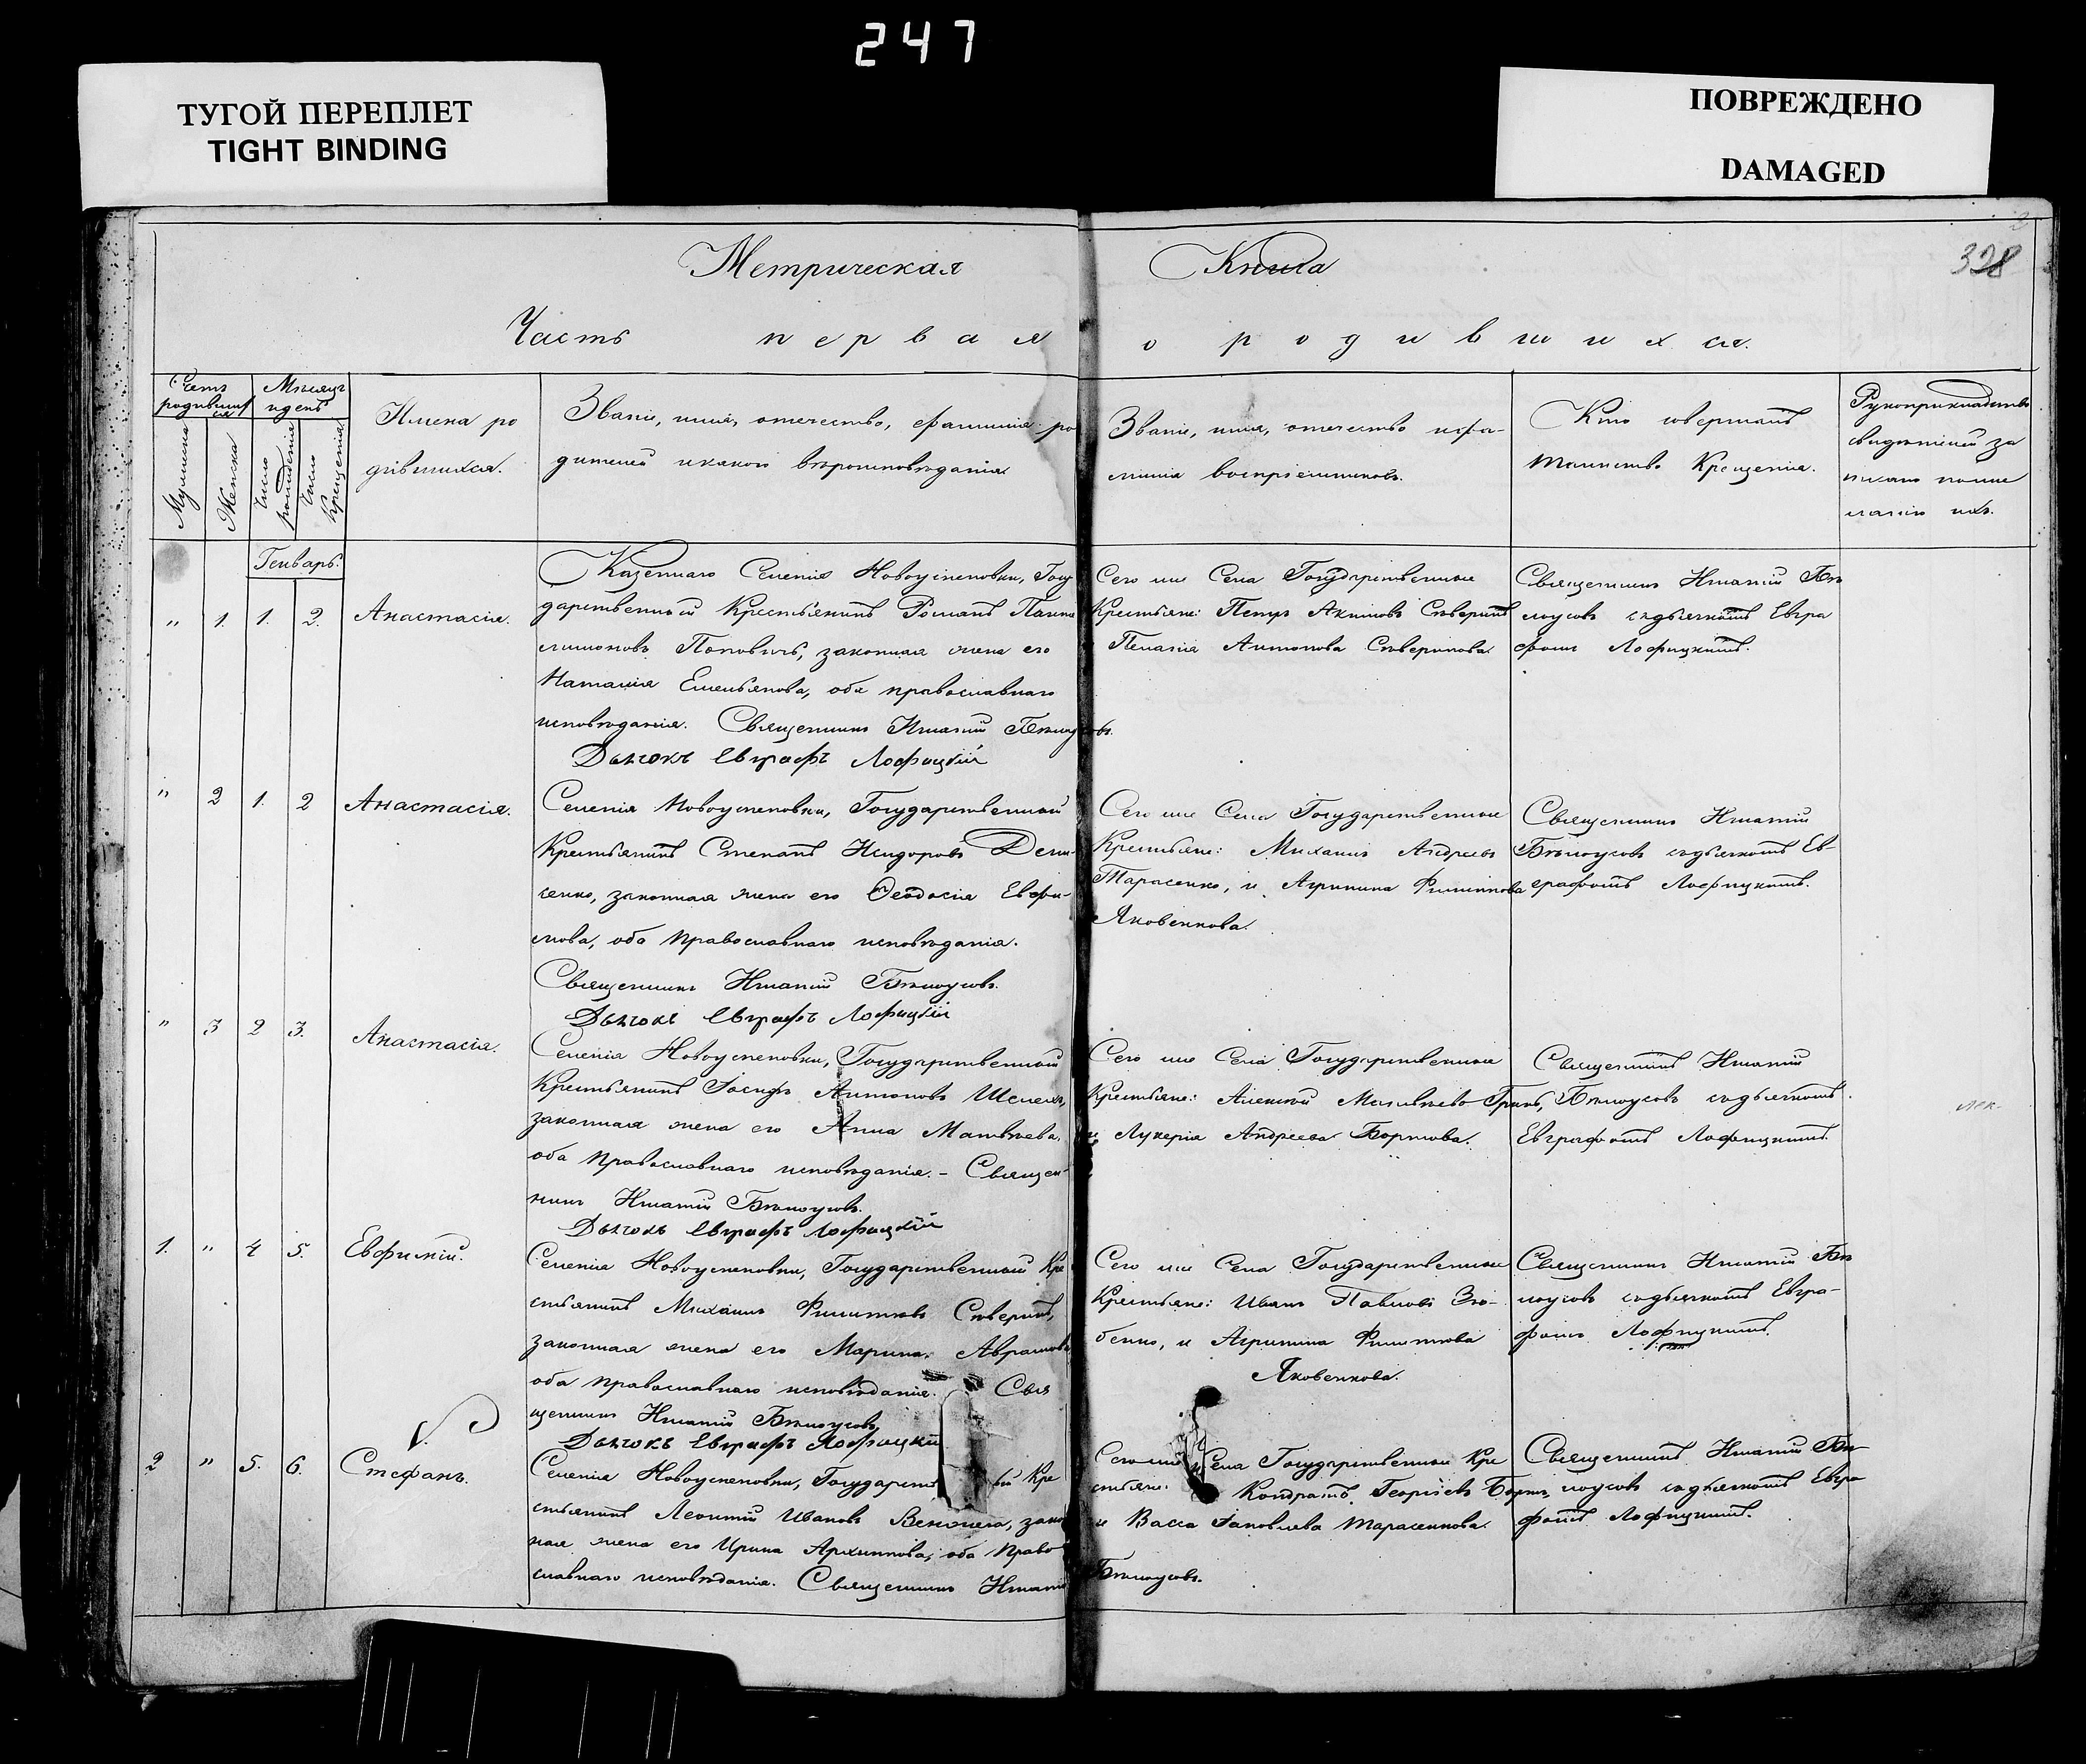 247
ТУГОЙ ПЕРЕПЛЕТ
TIGHT BINDING
ПОВРЕЖДЕНО
DAMAGED
328
Метрическая Книга
Часть первая о родившихся.
Счетъ родившихся
Мѣсяцъ и день
Мужеска
Женска
Число рожденія
Число Крещенія
Имена ро
дившихся.
Званіе, имя, отечество, фамилія ро
дителей и какого вѣроисповѣданія
Званіе, имя, отечество и фа-
милія воспріемниковъ.
Кто совершалъ
таинство Крещенія.
Рукоприкладство
свидѣтелей за
писано по же
ланію ихъ.
Генварь.
" 1. 1. 2. Анастасія.
Казеннаго Селенія Новоуспеновки, Госу
дарственный Крестьянинъ Романъ
Поповичъ, законная жена его
Наталія Емельянова, оба православнаго
исповѣданія. Священникъ Игнатій Бѣлоусовъ.
Дьячокъ Евграфъ Лофицкій
Сего же Села Государственные
Крестьяне: Петръ Акимовъ Северинъ
Пелагія Антонова Северинова
Священникъ Игнатій Бѣ
лоусовъ съ дьячкомъ Евгра
фомъ Лофицкимъ.
" 2 1. 2 Анастасія.
Селенія Новоуспеновки, Государственный
Крестьянинъ Степанъ Исидоровъ Деми-
ченко, законная жена его Ѳеодосія Евфи-
мова, оба православнаго исповѣданія.
Священникъ Игнатій Бѣлоусовъ.
Дьячокъ Евграфъ Лофицкій
Сего же Села Государственные
Крестьяне: Михаилъ Андреевъ
Тарасенко, и Агрипина Филиппова
Яковенкова.
Священникъ Игнатій
Бѣлоусовъ съ дьячкомъ Ев-
графомъ Лофицкимъ.
" 3 2 3. Анастасія.
Селенія Новоуспеновки, Государственный
Крестьянинъ Іосифъ Антоновъ
законная жена его Анна Матвѣева,
оба православнаго исповѣданія. - Священ-
никъ Игнатій Бѣлоусовъ.
Дьячокъ Евграфъ Лофицкій
Сего же Села Государственные
Крестьяне: Алексѣй
и Лукерія Андреева
Священникъ Игнатій
Бѣлоусовъ съ дьячкомъ
Евграфомъ Лофицкимъ.
1. " 4 5. Евфимій.
Селенія Новоуспеновки, Государственный Кре
стьянинъ Михаилъ Филиповъ Северинъ,
законная жена его Марина Аврамова,
оба православнаго исповѣданія. Свя
щенникъ Игнатій Бѣлоусовъ,
Дьячокъ Евграфъ Лофицкій
Сего же Села Государственные
Крестьяне: Иванъ Павловъ Зю-
бенко, и Агрипина Филипова
Яковенкова.
Священникъ Игнатій Бѣ
лоусовъ съ дьячкомъ Евгра-
фомъ Лофицкимъ.
2 " 5. 6. Стефанъ.
Селенія Новоуспеновки, Государств ый Кре
стьянинъ Леонтій Ивановъ закон
ная жена его Ирина Архиппова, оба право
славнаго исповѣданія. Священникъ Игнатій
Бѣлоусовъ.
Сего же Села Государственные Кре
стьяне: Кондратъ Георгіевъ
и Васса Яковлева Тарасенкова.
Священникъ Игнатій Бѣ-
лоусовъ съ дьячкомъ Евгра
фомъ Лофицкимъ.